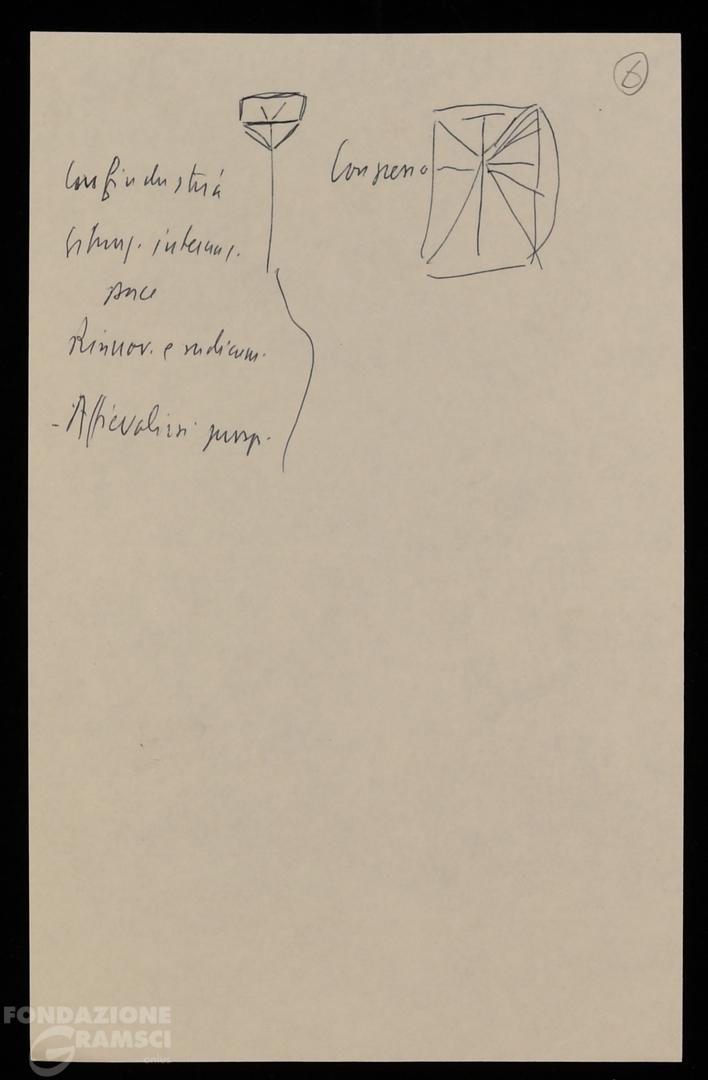 6
Confindustria
Congresso
Situaz. internaz.
pace
Rinnov. e radicam.
- Affievolirsi
FONDAZIONE
GRAMSCI
onlus